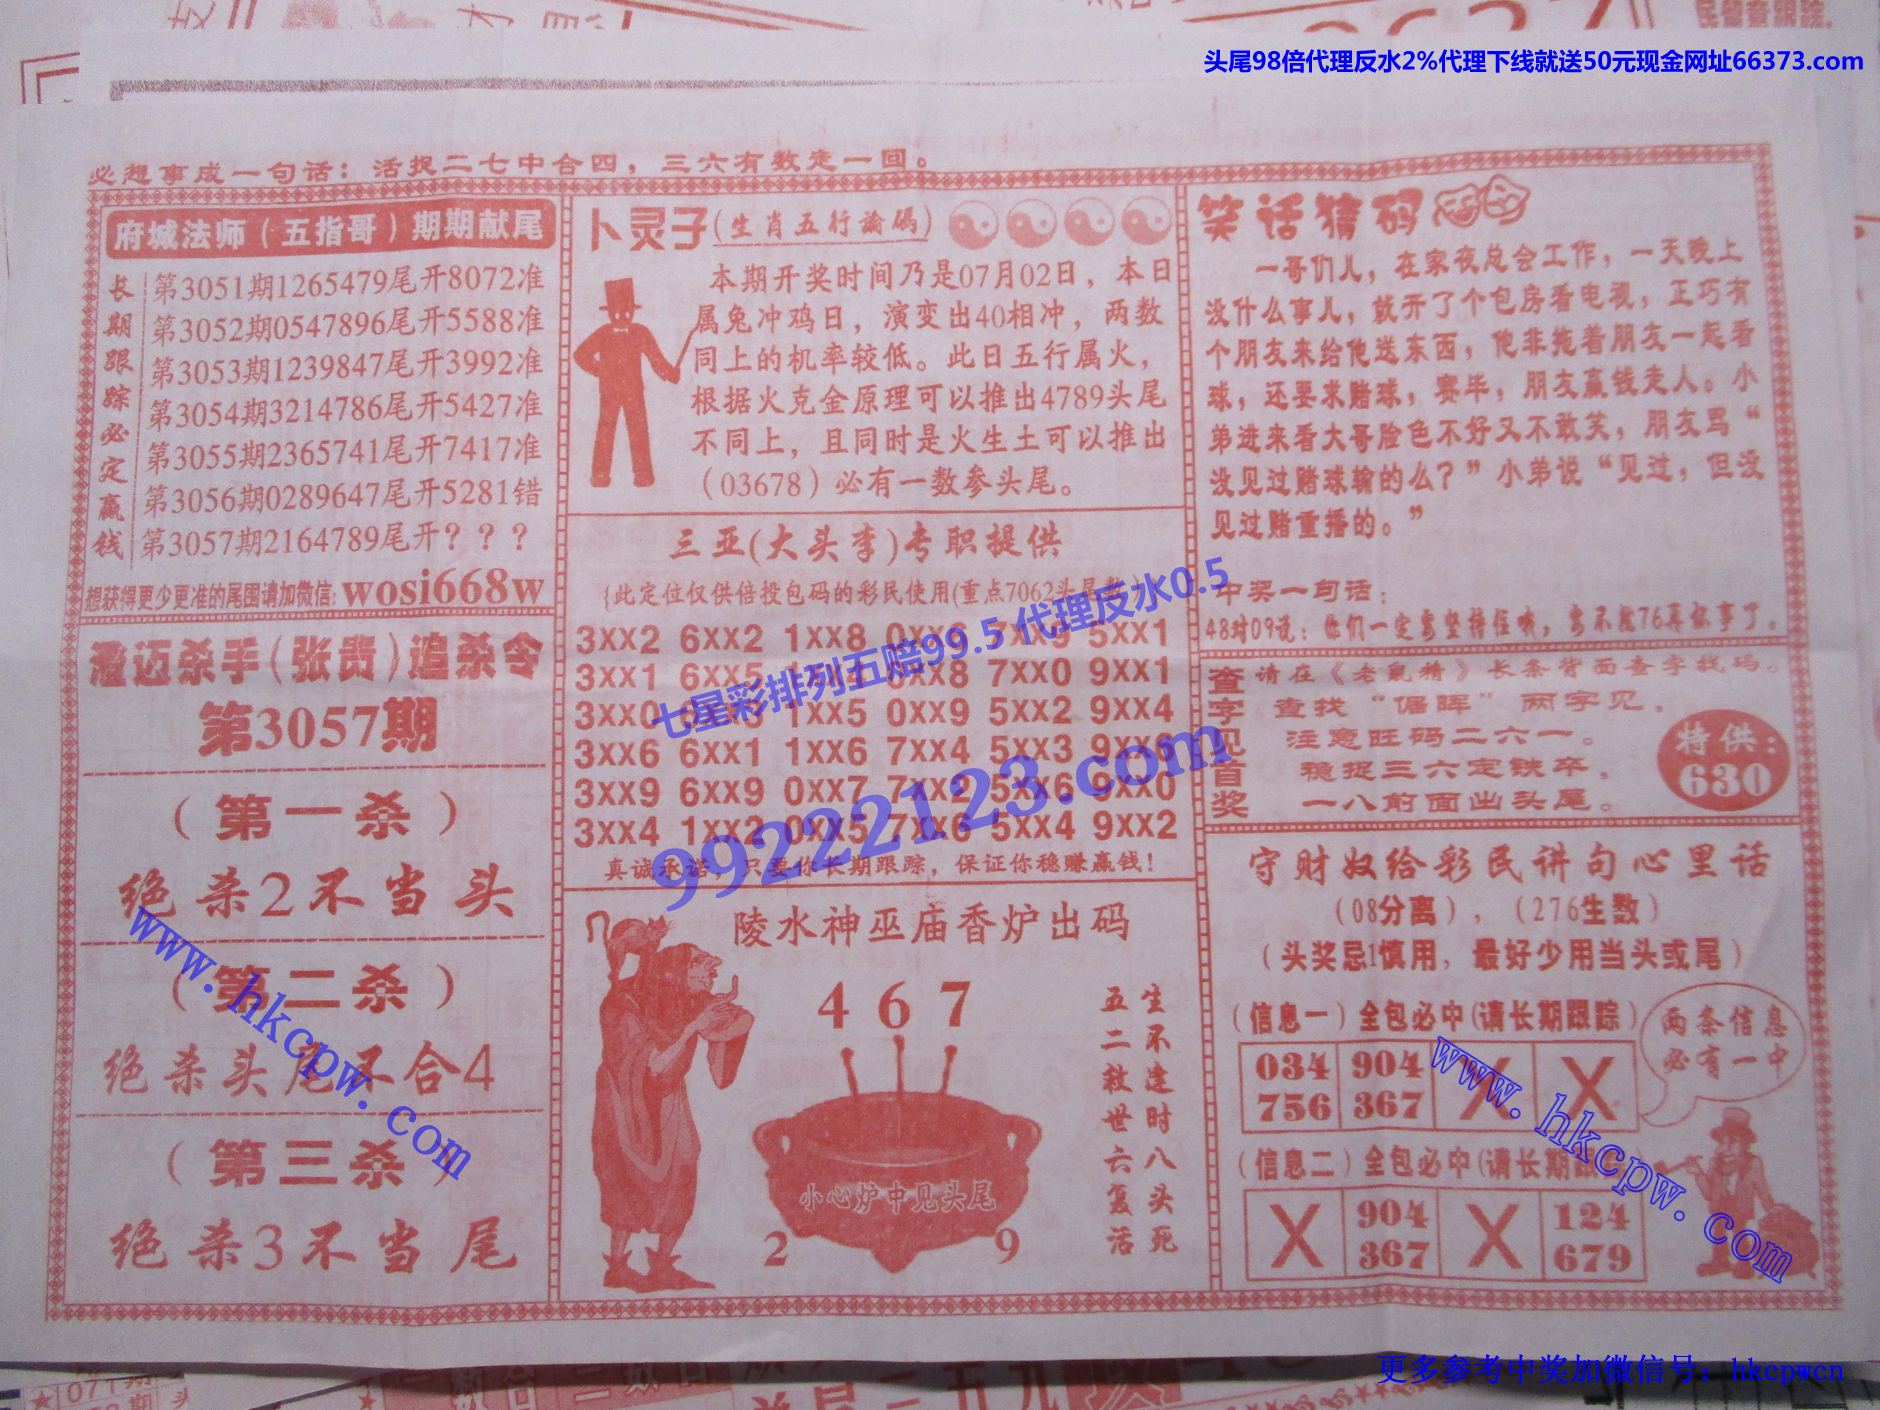 头尾98倍代理反水2%代理下线就送50元现金网址66373.com
必想事成一句话：活捉二七中合四，三六有数走一回。
府城法师（五指哥）期期献尾
长期跟踪必定赢钱
第3051期1265479尾开8072准
第3052期0547896尾开5588准
第3053期1239847尾开3992准
第3054期3214786尾开5427准
第3055期2365741尾开7417准
第3056期0289647尾开5281错
第3057期2164789尾开？？？
想获得更少更准的尾围请加微信：wosi668w
澄迈杀手（张贵）追杀令
第3057期
（第一杀）
绝杀2不当头
（第二杀）
绝杀头尾不合4
（第三杀）
绝杀3不当尾
卜灵子（生肖五行论码）
本期开奖时间乃是07月02日，本日
属兔冲鸡日，演变出40相冲，两数
同上的机率较低。此日五行属火，
根据火克金原理可以推出4789头尾
不同上，且同时是火生土可以推出
（03678）必有一数参头尾。
三亚（大头李）专职提供
{此定位仅供倍投包码的彩民使用(重点7062头尾数)
3XX2 6XX2 1XX8 0XX6 7XX9 5XX1
3XX1 6XX5 1XX4 0XX8 7XX0 9XX1
3XX0 1XX5 0XX9 5XX2 9XX4
3XX6 6XX1 1XX6 7XX4 5XX3 9XX6
3XX9 6XX9 0XX7 7XX2 5XX6 9XX0
3XX4 1XX2 0XX5 7XX6 5XX4 9XX2
真诚承诺，只要你长期跟踪，保证你稳赚赢钱！
陵水神巫庙香炉出码
4 6 7
小心炉中见头尾
2 9
生不逢时八头死
五二救世六复活
笑话猜码
一哥们儿，在家夜总会工作，一天晚上
没什么事儿，就开了个包房看电视，正巧有
个朋友来给他送东西，他非拖着朋友一起看
球，还要求赌球，赛毕，朋友赢钱走人。小
弟进来看大哥脸色不好又不敢笑，朋友骂“
没见过赌球输的么？”小弟说“见过，但没
见过赌重播的。”
中奖一句话：
48对09说：他们一定要坚持住哦，要不然76再你事了
查字见首奖
请在《老鼠精》长条背面查字找码。
查找“倔晖”两字见，
注意旺码二六一。
稳捉三六定铁卒，
一八前面出头尾。
特供：
630
守财奴给彩民讲句心里话
（08分离），（276生数）
（头奖忌1慎用，最好少用当头或尾）
（信息一）全包必中(请长期跟踪)
034 904 X X
756 367
两条信息
必有一中
（信息二）全包必中(请长期跟
X 904 X 124
367 679
七星彩排列五赔99.5 代理反水0.5
99222123.com
www.hkcpw.com
www.hkcpw.com
更多参考中奖加微信号：hkcpwcn